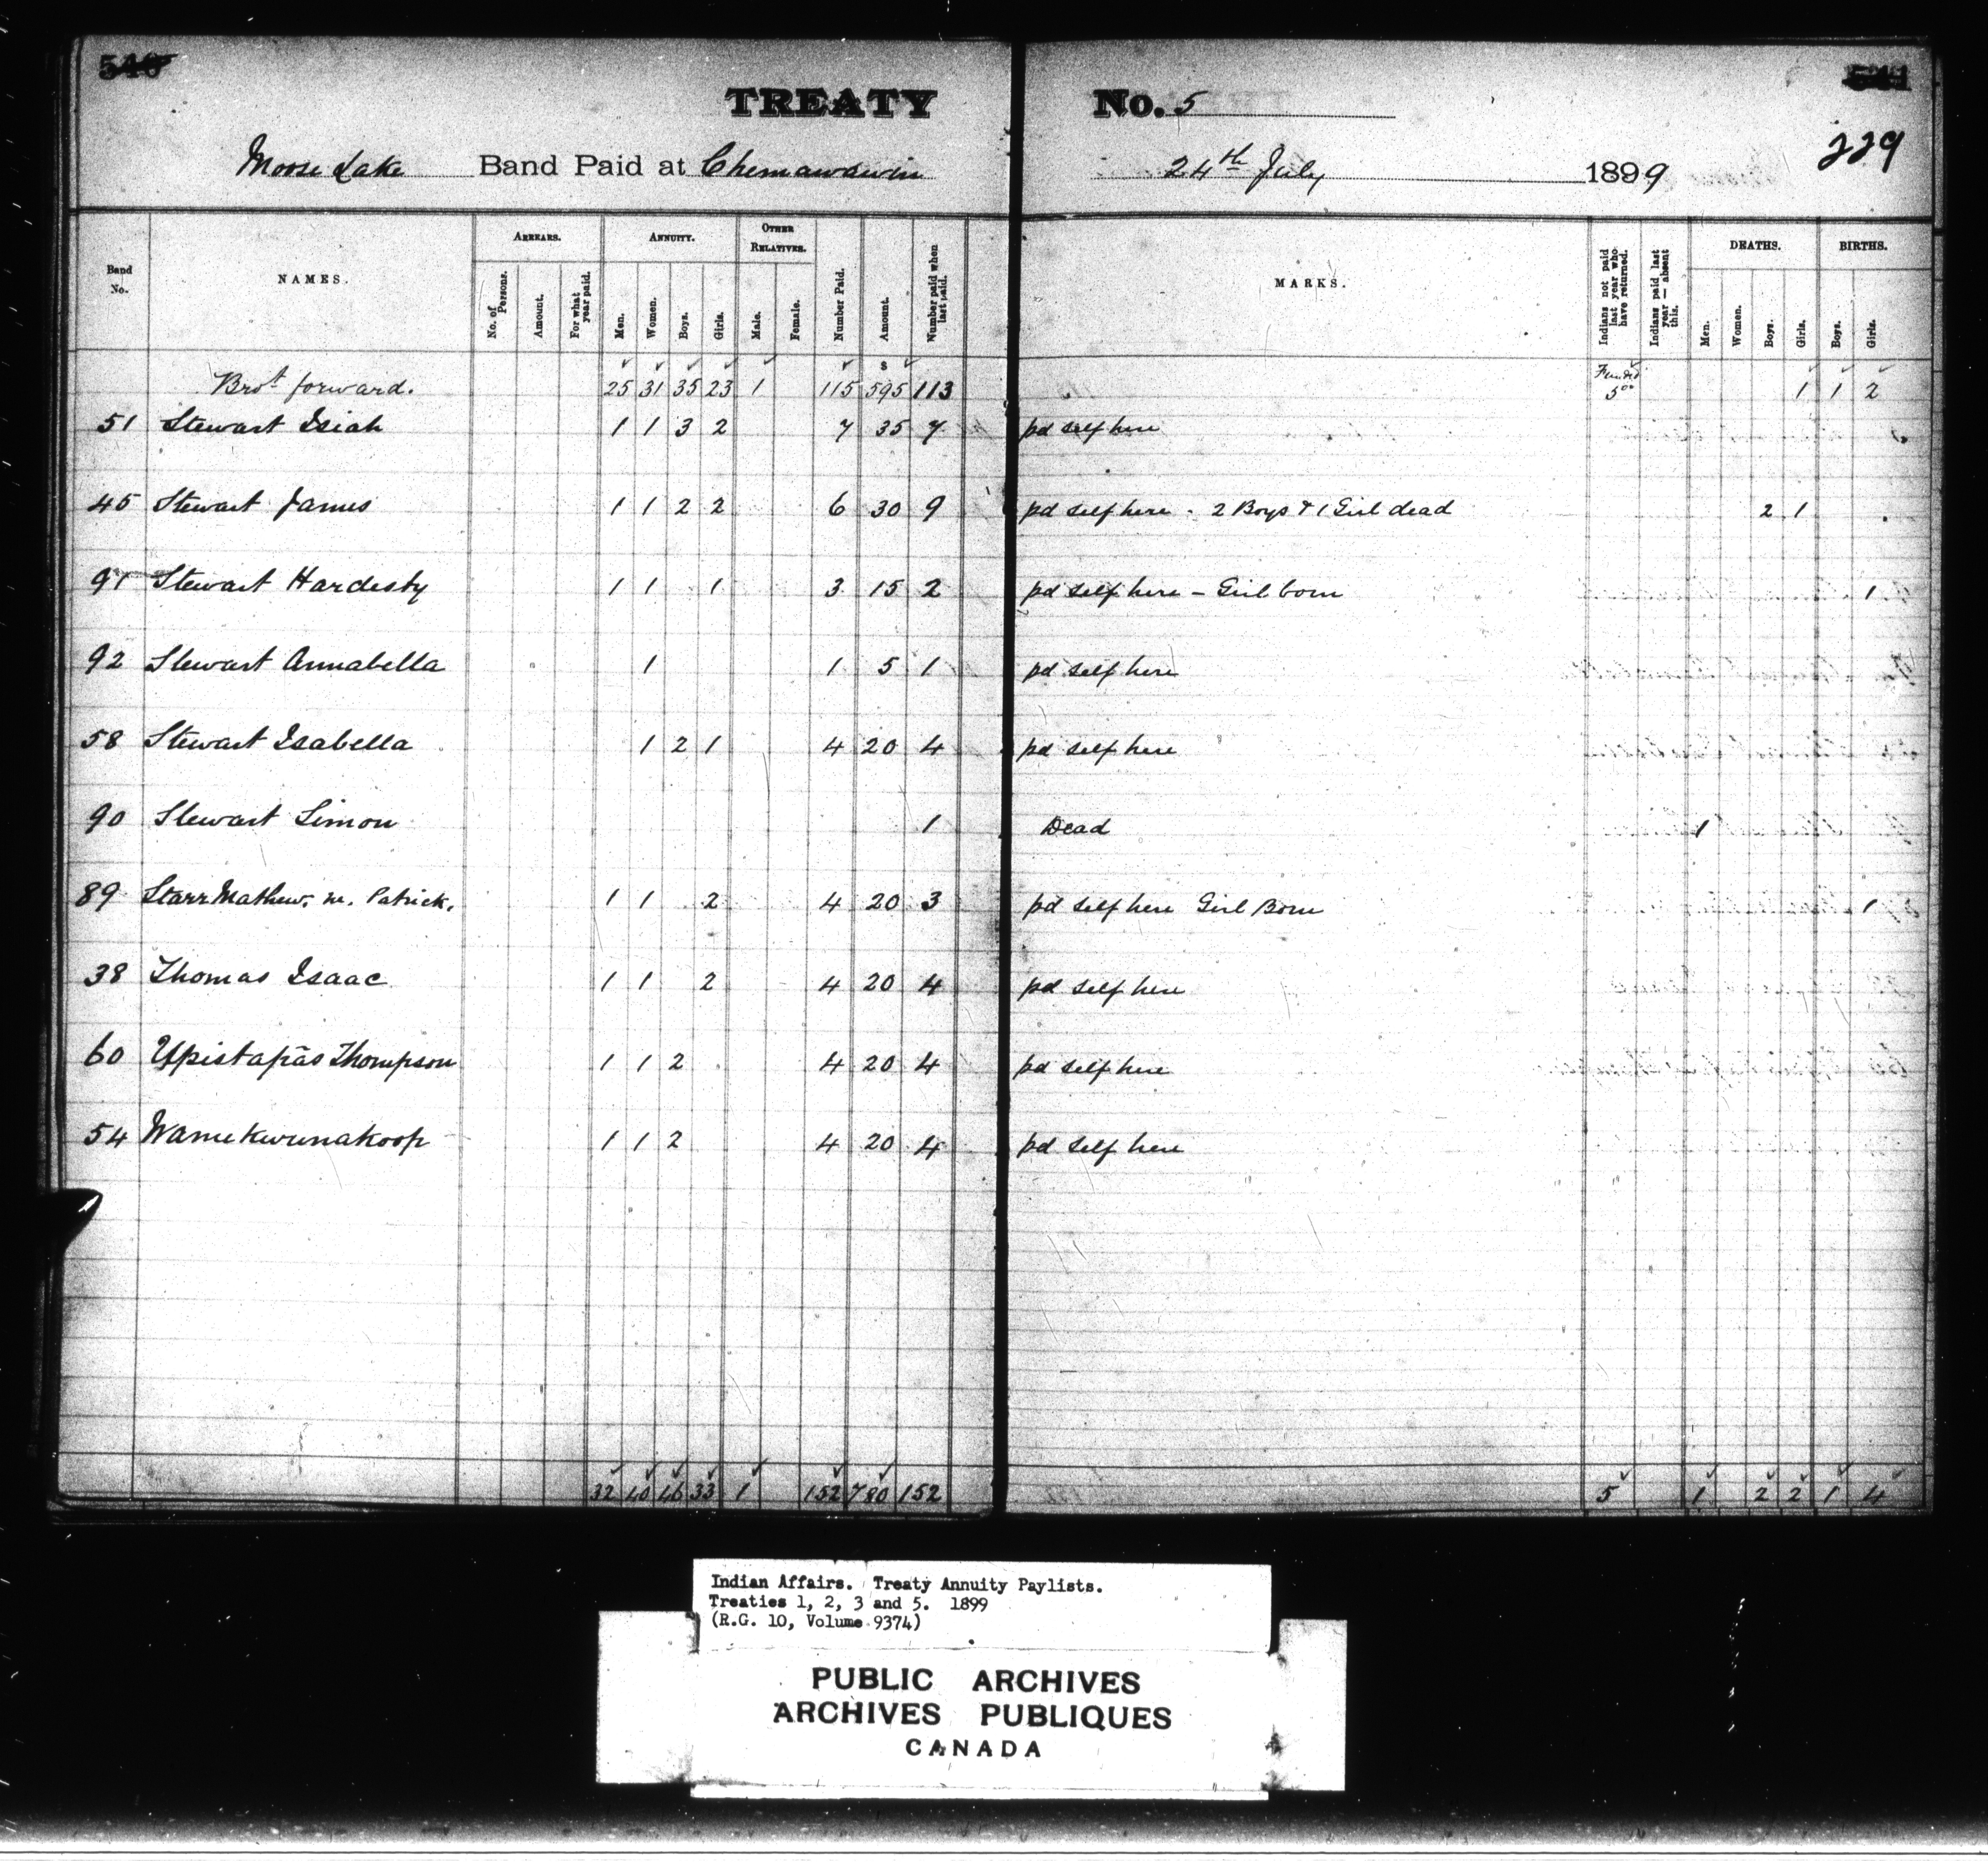 540
541
TREATY No. 5
229
Moose Lake Band Paid at Chemawawin 24th July 1899
Band No. NAMES. ARREARS. No. of Persons. Amount. For what year paid. ANNUITY. Men. Women. Boys. Girls. OTHER RELATIVES. Male. Female. Number Paid. Amount. Number paid when last paid. MARKS. Indians not paid last year who have returned. Indians paid last year — absent this. DEATHS. Men. Women. Boys. Girls. BIRTHS. Boys. Girls.
$
Brot forward. 25 31 35 23 1 115 595 113 Funded 5 00 1 1 2
51 Stewart Isiah 1 1 3 2 7 35 7 pd self here
45 Stewart James 1 1 2 2 6 30 9 pd self here - 2 Boys & 1 Girl dead 2 1
91 Stewart Hardesty 1 1 1 3 15 2 pd self here - Girl born 1
92 Stewart Annabella 1 1 5 1 pd self here
58 Stewart Isabella 1 2 1 4 20 4 pd self here
90 Stewart Simon 1 Dead 1
89 Starr Mathew, m. Patrick. 1 1 2 4 20 3 pd self here Girl Born 1
38 Thomas Isaac 1 1 2 4 20 4 pd self here
60 Upistapās Thompson 1 1 2 4 20 4 pd self here
54 Wamekwunakoop 1 1 2 4 20 4 pd self here
32 40 46 33 1 152 780 152 5 1 2 2 1 4
Indian Affairs. Treaty Annuity Paylists.
Treaties 1, 2, 3 and 5. 1899
(R.G. 10, Volume 9374)
PUBLIC ARCHIVES
ARCHIVES PUBLIQUES
CANADA